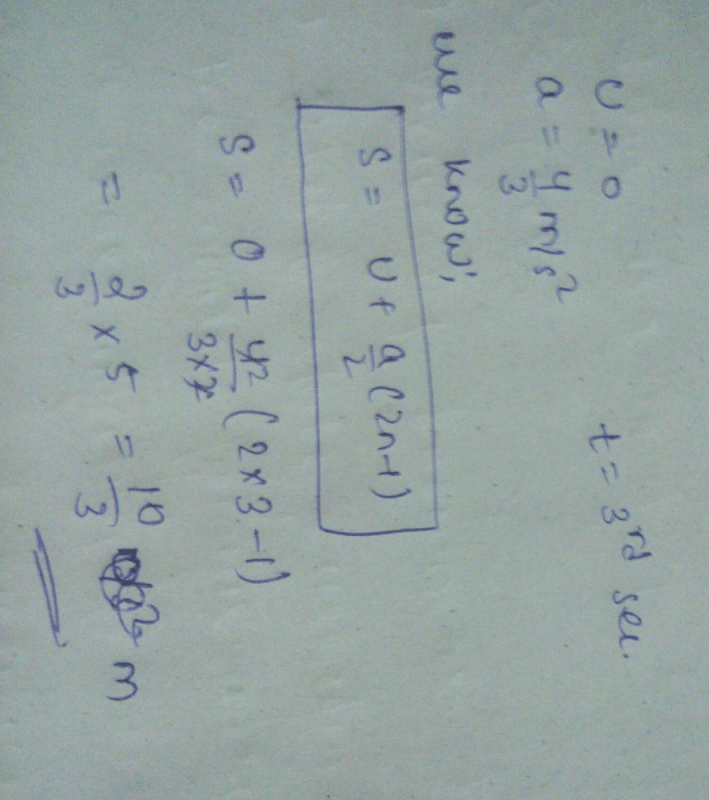 u = 0 t = 3rd sec.
a = 4/3 m/s²
we know,
S = u + a/2 (2n-1)
S = 0 + 4 2/3×2 (2×3-1)
= 2/3 × 5 = 10/3 m